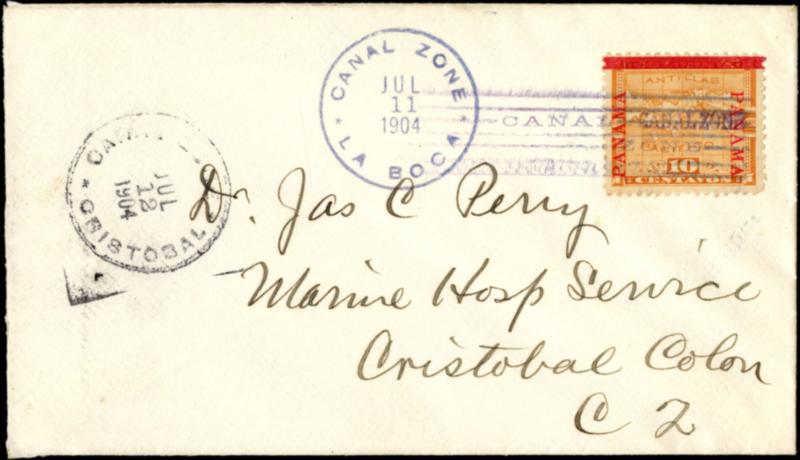 CANAL ZONE
JUL
11
1904
LA BOCA
ANTILLAS
PANAMA
PANAMA
CANAL
CANAL ZONE
10
CENTAVOS
JUL
12
1904
CRISTOBAL
Dr. Jas C Perry
Marine Hosp Service
Cristobal Colon
C Z